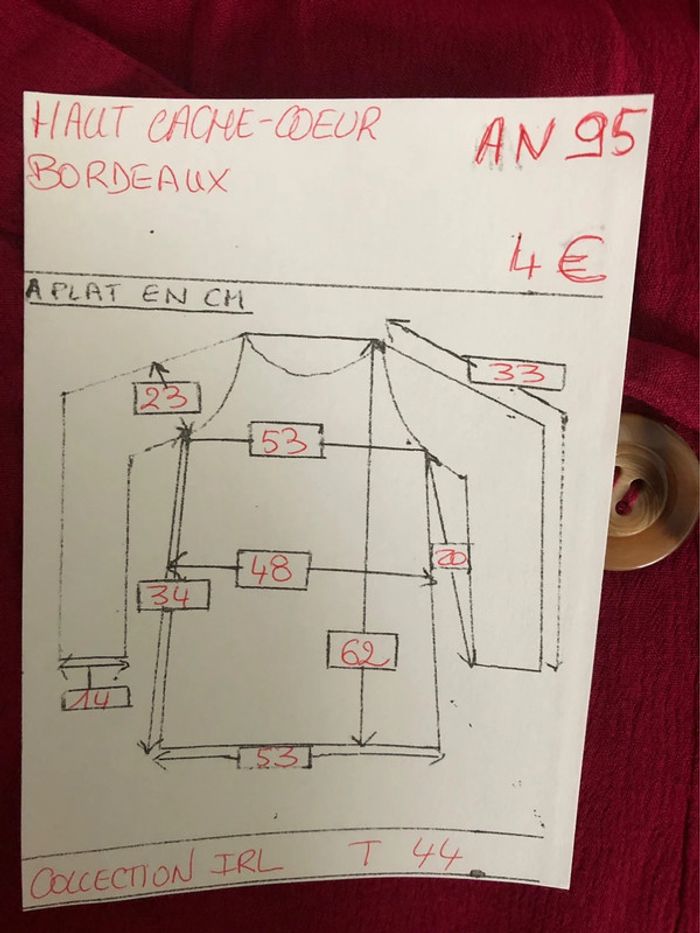 HAUT CACHE-COEUR
AN 95
BORDEAUX
4 €
A PLAT EN CM
33
23
53
20
48
34
62
14
53
COLLECTION IRL T 44